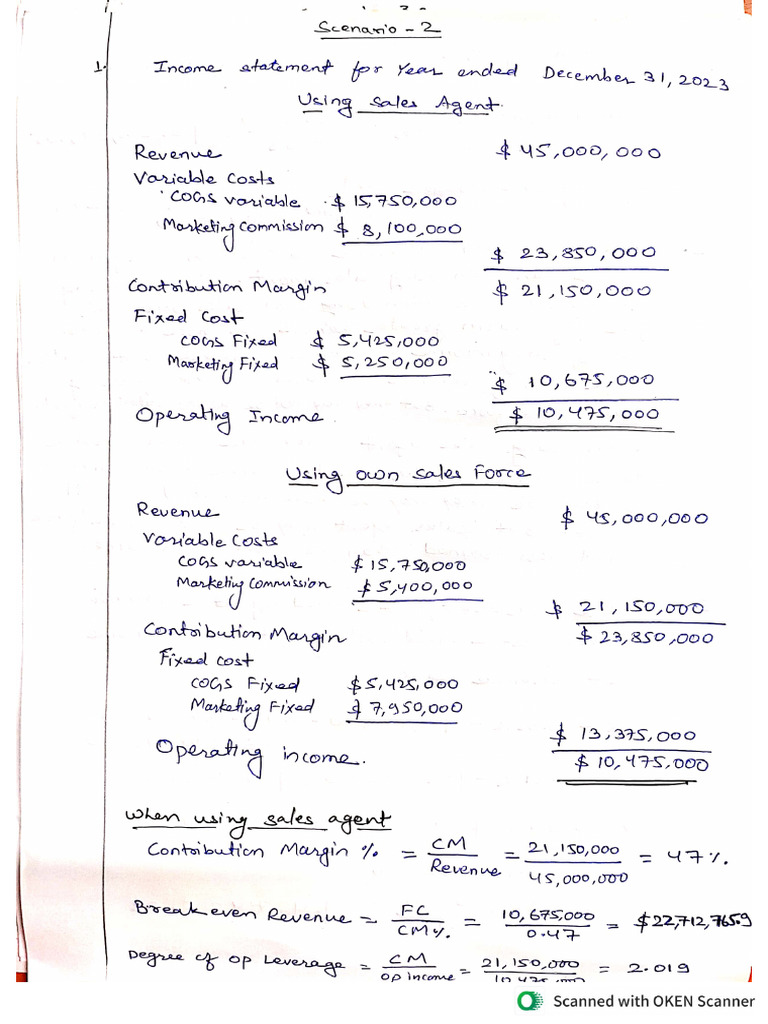 Scenario - 2
1. Income statement for Year ended December 31, 2023
Using Sales Agent
Revenue $ 45,000,000
Variable Costs
COGS variable $ 15,750,000
Marketing Commission $ 8,100,000
$ 23,850,000
Contribution Margin $ 21,150,000
Fixed Cost
COGS Fixed $ 5,425,000
Marketing Fixed $ 5,250,000
$ 10,675,000
Operating Income $ 10,475,000
Using own sales Force
Revenue $ 45,000,000
Variable Costs
COGS variable $ 15,750,000
Marketing Commission $ 5,400,000
$ 21,150,000
Contribution Margin $ 23,850,000
Fixed cost
COGS Fixed $ 5,425,000
Marketing Fixed $ 7,950,000
$ 13,375,000
Operating income. $ 10,475,000
When using sales agent
Contribution Margin % = CM / Revenue = 21,150,000 / 45,000,000 = 47%.
Breakeven Revenue = FC / CM%. = 10,675,000 / 0.47 = $22,712,765.9
Degree of op Leverage = CM / op income = 21,150,000 / 10,475,000 = 2.019
Scanned with OKEN Scanner